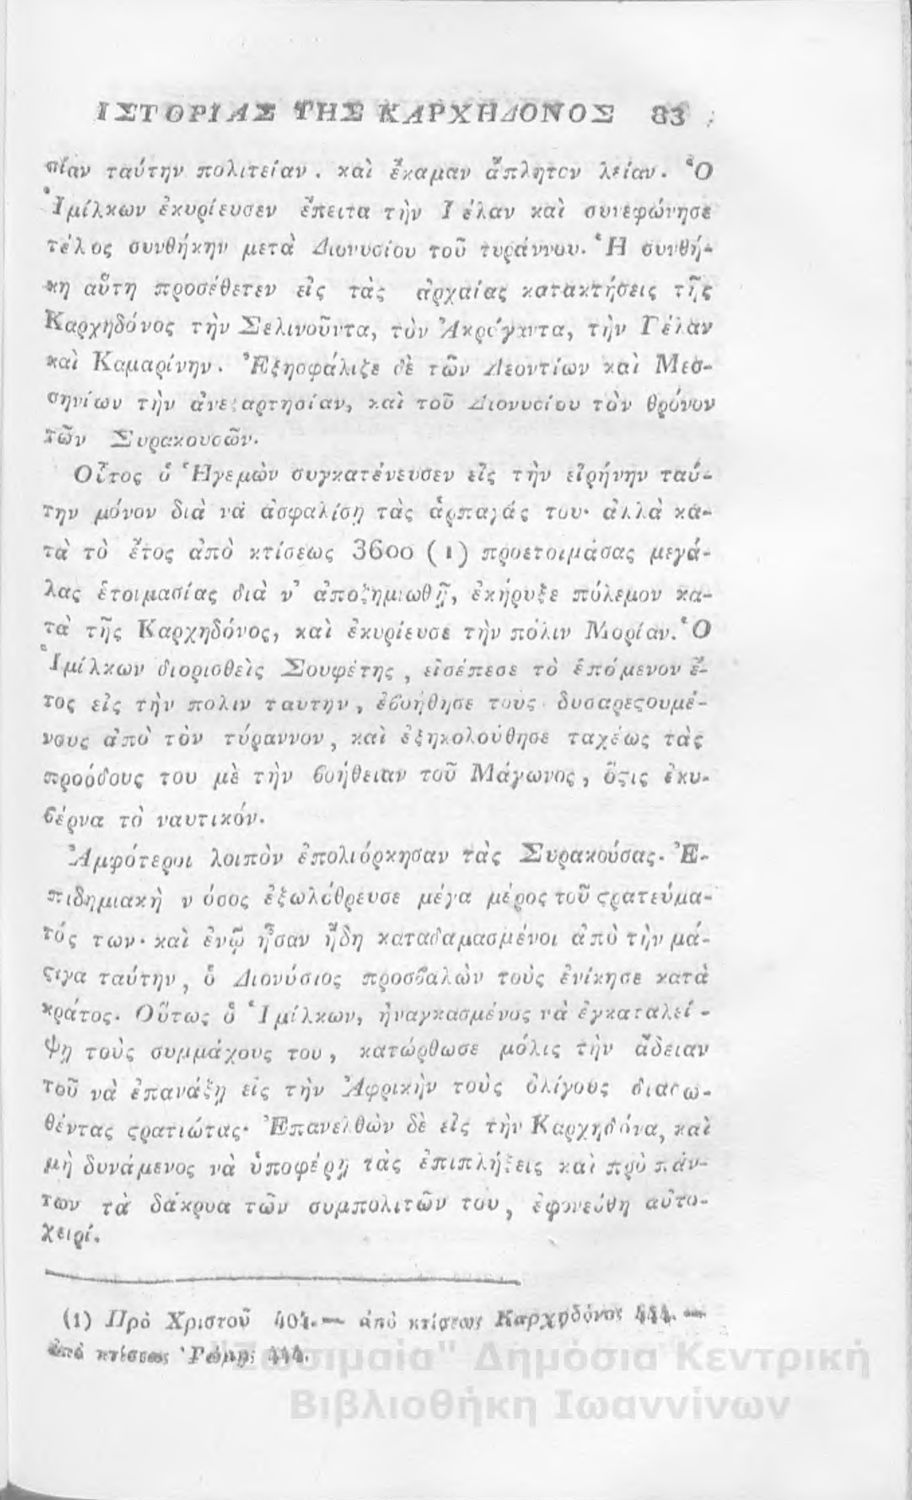 ΙΣΤΟΡΙΑΣ ΤΗΣ ΚΑΡΧΗΔΟΝΟΣ 83
σίαν ταύτην πολιτείαν. καὶ ἔκαμαν ἄπλητον λείαν. Ὁ
Ἰμίλκων ἐκυρίευσεν ἔπειτα τὴν Γέλαν καὶ συνεφώνησε
τέλος συνθήκην μετὰ Διονυσίου τοῦ τυράννου. Ἡ συνθή-
κη αὕτη προσέθετεν εἰς τὰς ἀρχαίας κατακτήσεις τῆς
Καρχηδόνος τὴν Σελινοῦντα, τὸν Ἀκράγαντα, τὴν Γέλαν
καὶ Καμαρίνην. Ἐξησφάλιζε δὲ τῶν Λεοντίων καὶ Μεσ-
σηνίων τὴν ἀνεξαρτησίαν, καὶ τοῦ Διονυσίου τὸν θρόνον
τῶν Συρακουσῶν.
Οὗτος ὁ Ἡγεμὼν συγκατένευσεν εἰς τὴν εἰρήνην ταύ-
την μόνον διὰ νὰ ἀσφαλίσῃ τὰς ἁρπαγάς του· ἀλλὰ κα-
τὰ τὸ ἔτος ἀπὸ κτίσεως 3600 (1) προετοιμάσας μεγά-
λας ἑτοιμασίας διὰ ν' ἀποζημιωθῇ, ἐκήρυξε πόλεμον κα-
τὰ τῆς Καρχηδόνος, καὶ ἐκυρίευσε τὴν πόλιν Μορίαν. Ὁ
Ἰμίλκων διορισθεὶς Σουφέτης, εἰσέπεσε τὸ ἑπόμενον ἔ-
τος εἰς τὴν πόλιν ταύτην, ἐβοήθησε τοὺς δυσαρεςουμέ-
νους ἀπὸ τὸν τύραννον, καὶ ἐξηκολούθησε ταχέως τὰς
προόδους του μὲ τὴν βοήθειαν τοῦ Μάγωνος, ὅςις ἐκυ-
βέρνα τὸ ναυτικόν.
Ἀμφότεροι λοιπὸν ἐπολιόρκησαν τὰς Συρακούσας. Ἐ-
πιδημιακὴ νόσος ἐξωλόθρευσε μέγα μέρος τοῦ ςρατεύμα-
τός των· καὶ ἐνῷ ἦσαν ἤδη καταδαμασμένοι ἀπὸ τὴν μά-
ςιγα ταύτην, ὁ Διονύσιος προσβαλὼν τοὺς ἐνίκησε κατὰ
κράτος. Οὕτως ὁ Ἰμίλκων, ἠναγκασμένος νὰ ἐγκαταλεί-
ψῃ τοὺς συμμάχους του, κατώρθωσε μόλις τὴν ἄδειαν
τοῦ νὰ ἐπανάξῃ εἰς τὴν Ἀφρικὴν τοὺς ὀλίγους διασω-
θέντας ςρατιώτας· Ἐπανελθὼν δὲ εἰς τὴν Καρχηδόνα, καὶ
μὴ δυνάμενος νὰ ὑποφέρῃ τὰς ἐπιπλήξεις καὶ πρὸ πάν-
των τὰ δάκρυα τῶν συμπολιτῶν του, ἐφονεύθη αὐτο-
χειρί.
(1) Πρὸ Χριστοῦ 404.— ἀπὸ κτίσεως Καρχηδόνος 444.—
ἀπὸ κτίσεως Ῥώμης
"Ζωσιμαία" Δημόσια Κεντρική
Βιβλιοθήκη Ιωαννίνων